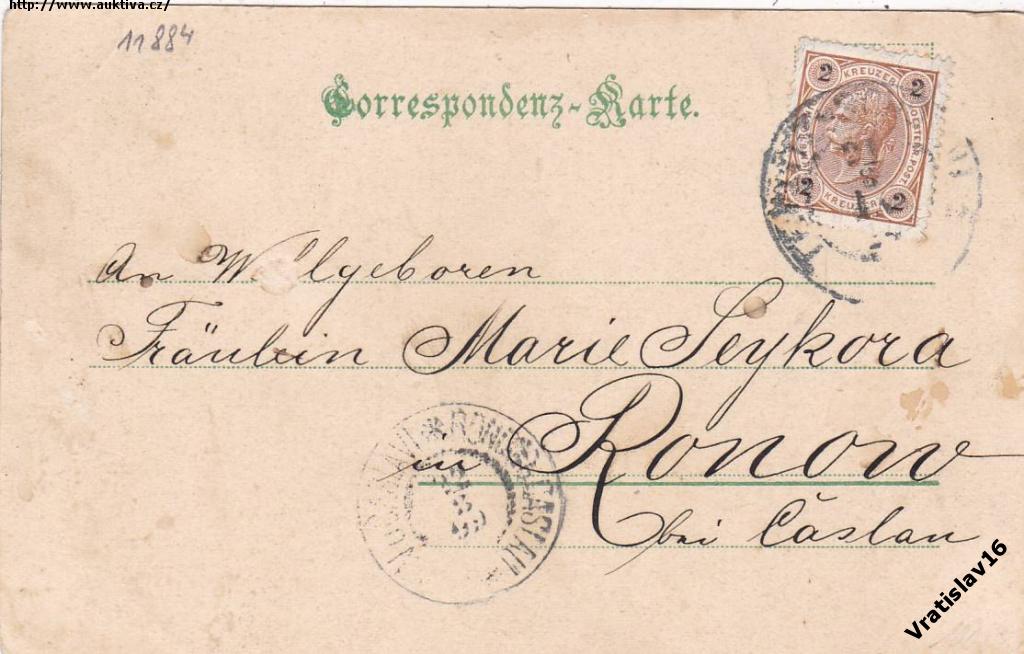 http://www.auktiva.cz/
11884
Correspondenz-Karte.
2 KREUZER 2
OESTERR. POST
2 KREUZER 2
An Wollgeboren
Fräulein Marie Seykora
in Ronow
bei Čáslau
RONOW CASLAU
Vratislav16